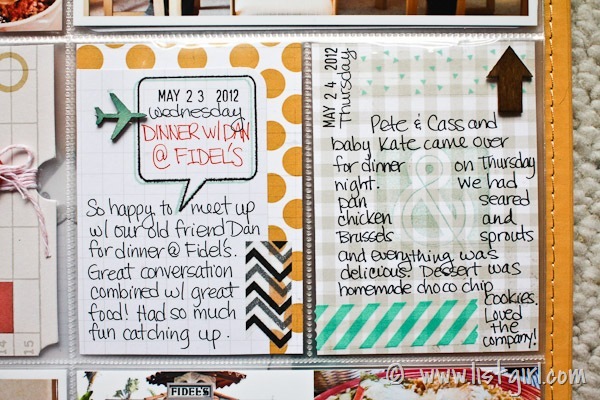 MAY 23 2012
Wednesday
DINNER W/ DAN
@ FIDEL'S
So happy to meet up
w/ our old friend Dan
for dinner @ Fidel's.
Great conversation
combined w/ great
food! Had so much
fun catching up.
MAY 24 2012
Thursday
Pete & Cass and
baby Kate came over
for dinner on Thursday
night. We had
pan seared
chicken and
Brussels sprouts
and everything was
delicious. Dessert was
homemade choco chip
cookies.
Loved
the
company!
&
FIDEL'S
© www.listgirl.com